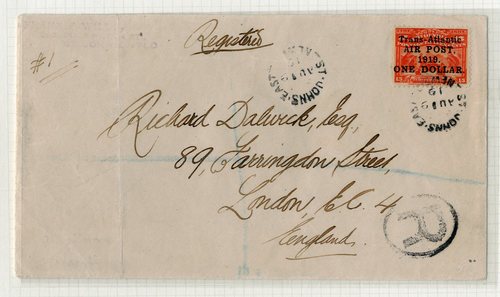 Registered
#1
Trans-Atlantic
AIR POST,
1919.
ONE DOLLAR.
ST. JOHNS. EAST
ST. JOHNS. EAST
Richard Dalwick, Esq,
89, Farringdon Street,
London, E.C. 4
England.
R